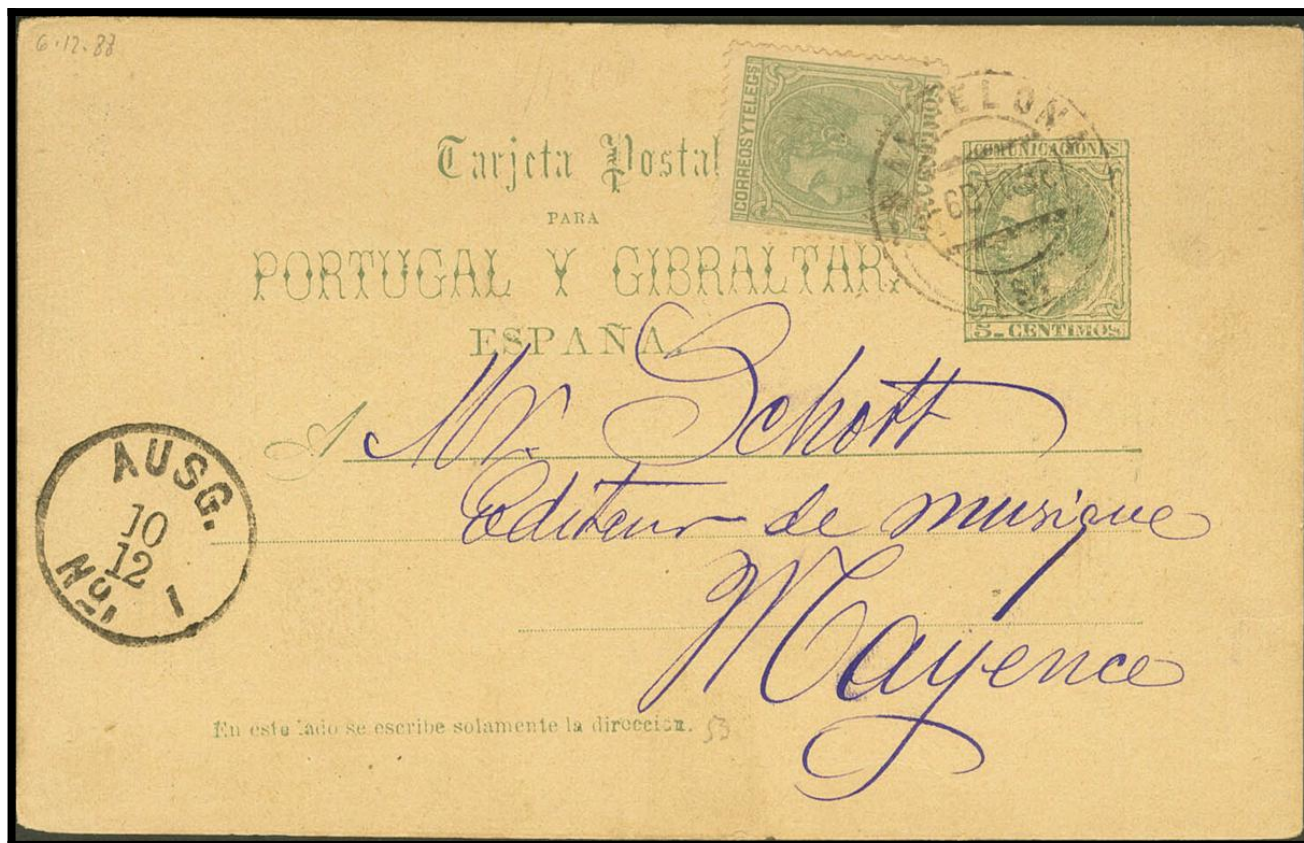 6.12.88
Tarjeta Postal
PARA
PORTUGAL Y GIBRALTAR.
ESPAÑA.
CORREOS Y TELEGS
COMUNICACIONES
5 CENTIMOS
BARCELONA
A Mr. Schott
Editeur de musique
Mayence
AUSG.
10
12
No. 1
En este lado se escribe solamente la dirección. 53